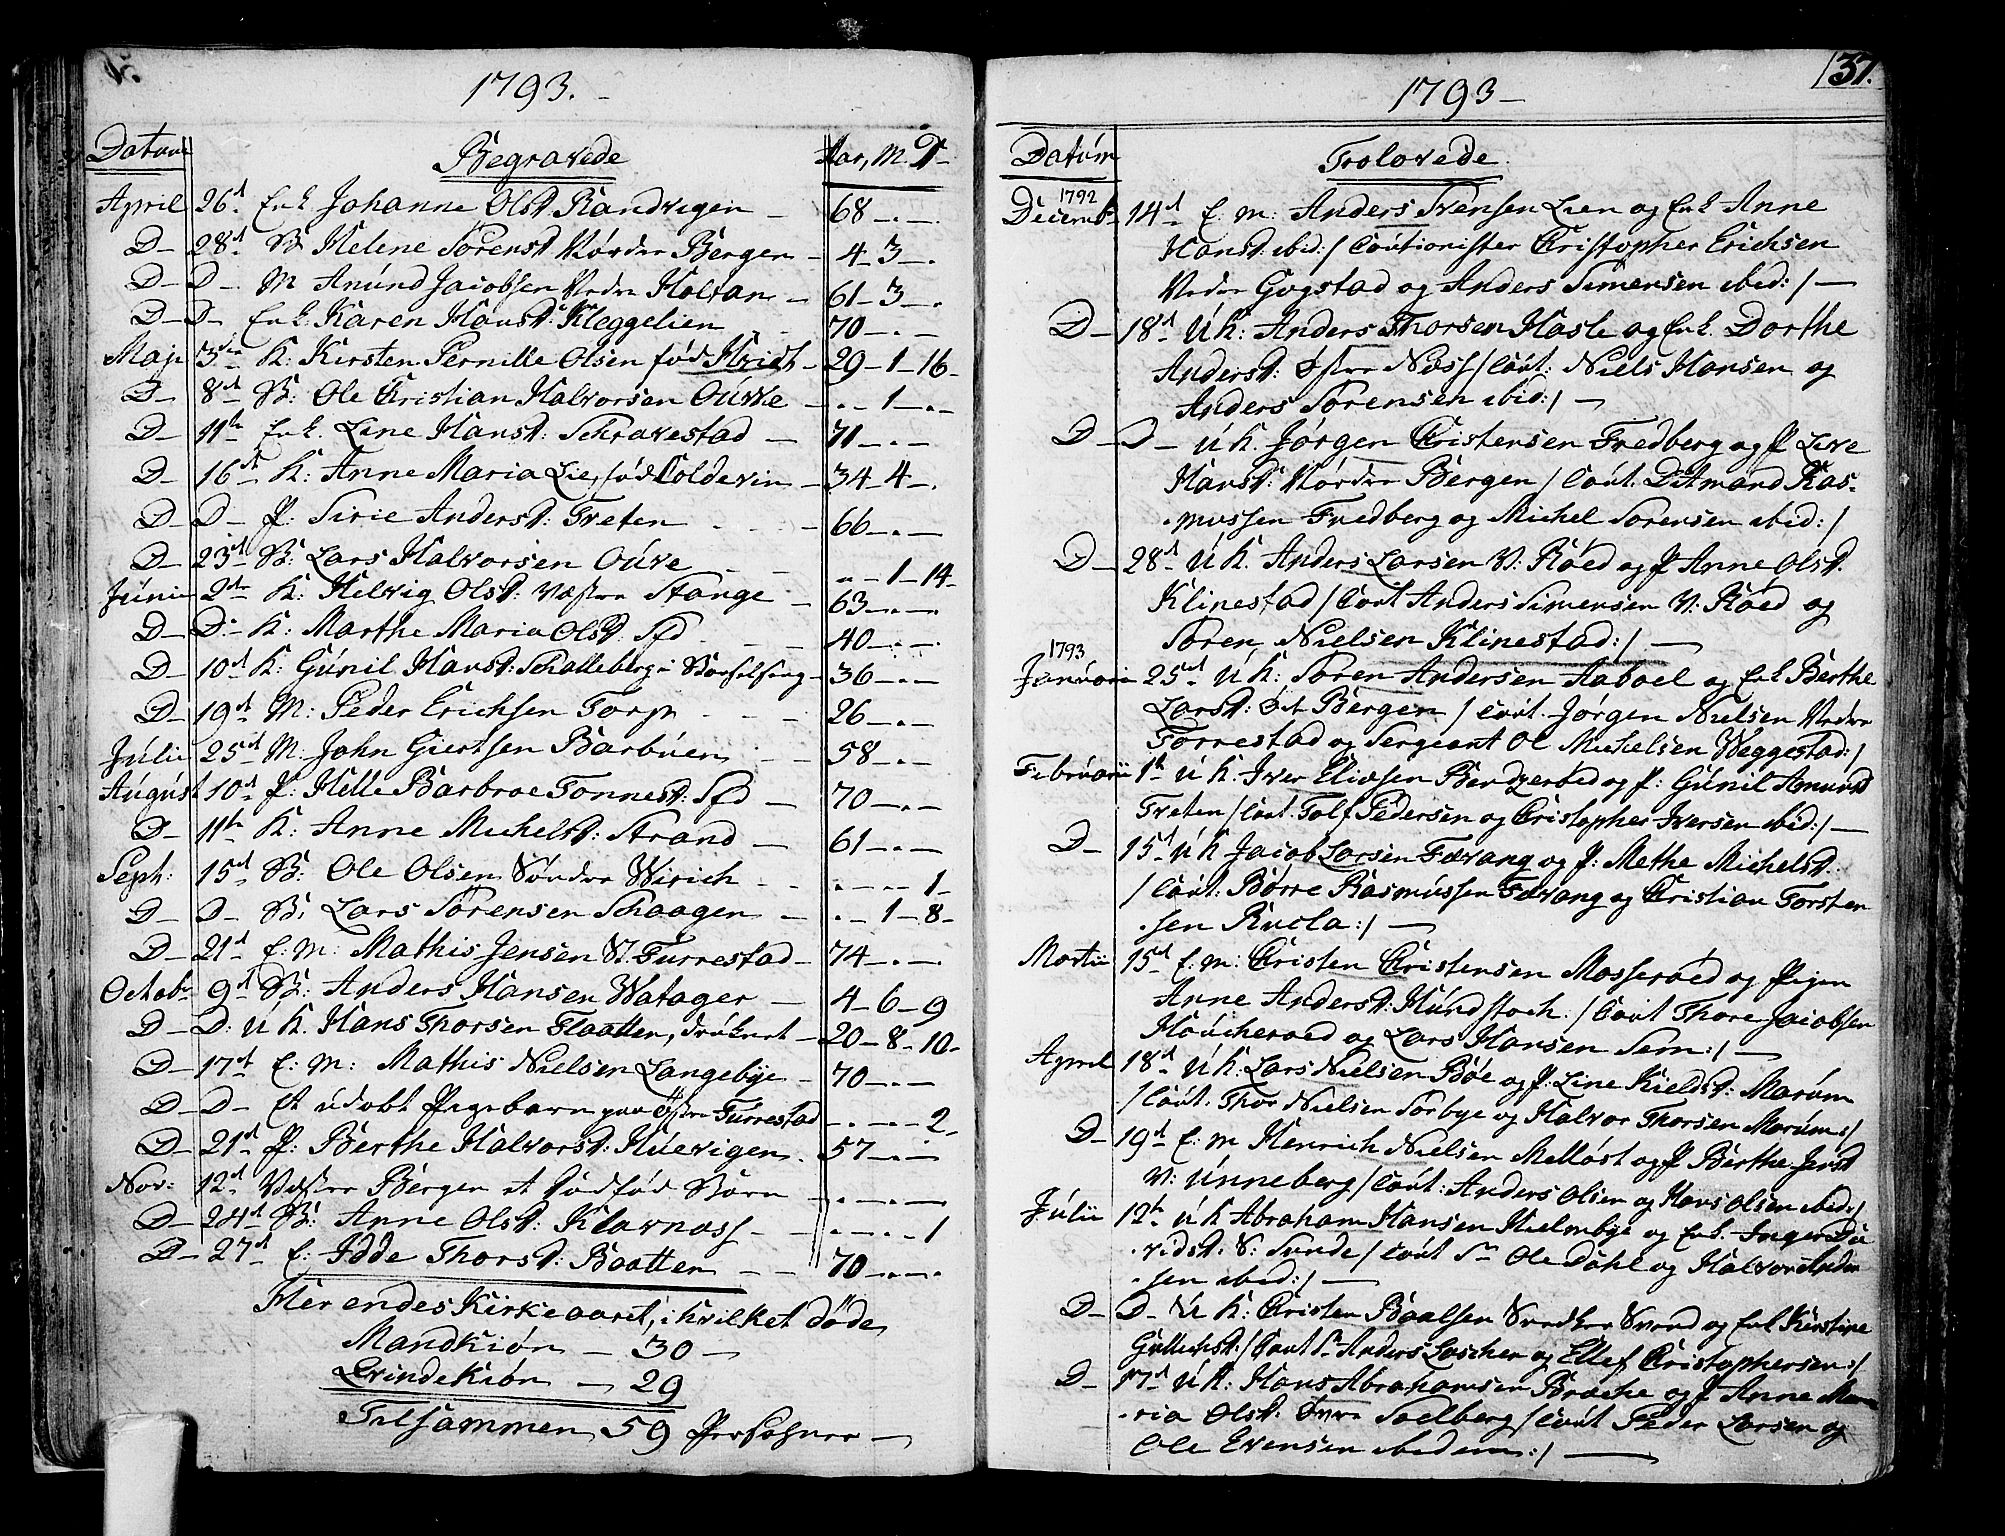 1793.
Datum Begravede Aar, M. D.
April 26d Enk. Johanne Olsd. Randvigen 68 - . - .
D - 28d B. Helene Sørensd Nordre Bergen 4 - 3 - .
D - D - M Amund Jacobsen Nedre Holtan 61 - 3 - .
D - D - Enk. Karen Hansd: Kleggelien 70 - . - .
Maji 3die K: Kirsten Pernille Olsen fød 29 - 1 - 16 -
D - 8d B: Ole Christian Halvorsen Ouvve . - 1 - . -
D - 11te Enk. Line Hansd: Skravestad 71 - . - .
D - 16d K: Anne Maria Lie, fød Coldevin 34 - 4 - .
D - D - P: Sirie Andersd: Tveten 66 - . - .
D - 23d B: Lars Halvorsen Ouve . - 1 - 14 -
Junii 2den K: Helvig Olsd: Væstre Stange 63 - . - .
D - D - K: Marthe Maria Olsd: Sfd 40 - . - .
D - 10d K: Gunil Hansd: Skalleberg i Barselseng 36 - . - .
D - 19d M: Peder Erichsen Torp 26 - . - .
Julii 25d M: John Giertsen Barbuen 58 - . - .
August 10d P: Helle Barbroe Tonnesd: Sfd 70 - . - .
D - 11te K: Anne Michelsd: Strand 61 - . - .
Sept: 15d B: Ole Olsen Søndre Wirich . - . - 1 -
D - D - B: Lars Sørensen Skaagen . - 1 - 8 -
D - 21d E: M: Mathis Jensen V. Furrestad 74 - . - .
Octob. 9d B: Anders Hansen Watager 4 - 6 - 9
D - D: U K. Hans Thorsen Flaatten, druknet 20 - 8 - 10 -
D - 17d E: M: Mathis Nielsen Langebye 70 - . - .
D - D - Et udøbt Pigebarn paa Østre Furrestad . - . - 2 -
D - 21d P: Berthe Halvorsd: Huevigen 57 - . - .
Nov: 12d Væstre Bergen et Dødfød Barn . - . - .
D - 24d B: Anne Olsd: Klavnæss . - . - 1
D - 27d E: Idde Thorsd: Baatten 70 - . - .
Her endes Kirkeaaret, i hvilket døde
Mandkiøn - 30 -
Qvindekiøn - 29
Tilsammen 59 Personer -
137.
1793 -
Datum Trolovede.
1792
Decemb. 14d E: M: Anders Svensen Lien og Enk Anne
Hansd: ibid: / Cautionister Christopher Erichsen
Nedre Gogstad og Anders Simensen ibid: / -
D - 18d U K: Anders Thorsen Hasle og Enk. Dorthe
Andersd: Østre Næss / Caut: Niels Hansen og
Anders Sørensen ibid: / -
D - D - U K. Jørgen Christensen Fredberg og P. Live
Hansd: Nordre Bergen / Caut: Ditmand Ras-
mussen Fredberg og Michel Sørensen ibid: /
D - 28d U K. Anders Larsen V: Røed og P Anne Olsd.
Klinestad / Caut Anders Simensen V: Røed og
Søren Nielsen Klinestad: / -
1793
Januarii 25d U K: Søren Andersen Aaboel og Enk Berthe
Larsd: Øst Bergen / Caut: Jørgen Nielsen Nedre
Forrestad og Sergeant Ol Michelsen Weggestad: /
Februarii 1te U K: Iver Eliæsen Bendzerød og P: Gunil Amund
Tveten / Caut: Tolf Pedersen og Christopher Iversen ibid: / -
D - 15d U K Jacob Larsen Fævang og P: Methe Michelsd
/ Caut: Børre Rasmussen Fævang og Christian Torsten
sen / -
Martii 15d E: M: Christen Christensen Masseroed og Pigen
Anne Andersd: Hundstoch: / Caut Thore Jacobsen
Haucheroed og Lars Hansen Sem: / -
April 18d U K: Lars Nielsen Bøe og P: Line Kieldsd: Marum
/ Caut. Thor Nielsen Sørbye og Halvor Thorsen Marum: /
D - 19d E: M Henrich Nielsen Melløst og P Berthe
V: Unneberg / Caut: Anders Olsen og Hans Olsen ibid: /
Julii 12te U K Abraham Hansen Hielmbye og Enk. Inger Da
vidsd. S: Sunde / Caut Sr Ole Dahl og Halvor Ander
sen ibid: / -
D - D - U K: Christen Paalsen og Enk Kirstine
Gullichsd: / Caut Sr Anders Lascher og Ellef Christophersen: /
D - 17d U K: Hans Abrahamsen Brache og P Anne Ma
ria Olsd: Øvre Soelberg / Caut Peder Larsen og
Ole Evensen ibidem: / -